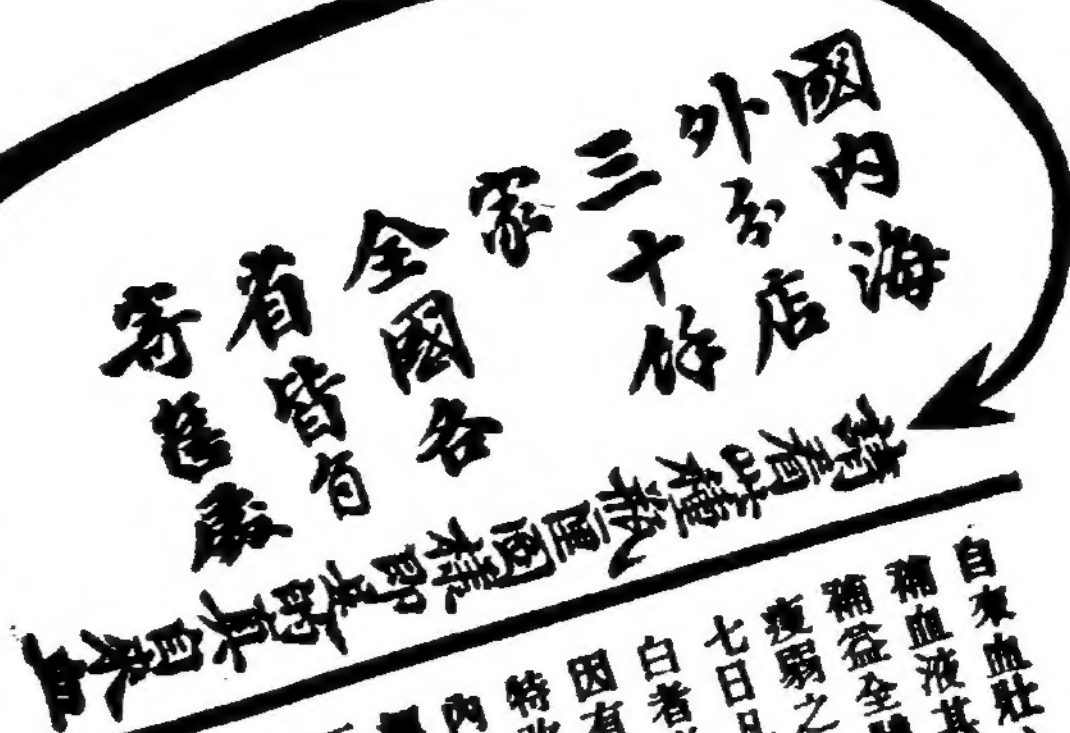 國內海
外分店
三十餘
家
全國各
省皆有
寄售處
請看此種瓶匣圖樣即是的真自來血
自來血壯
補血液其
補益全體
瘦弱之
七日見
白者
因有
特